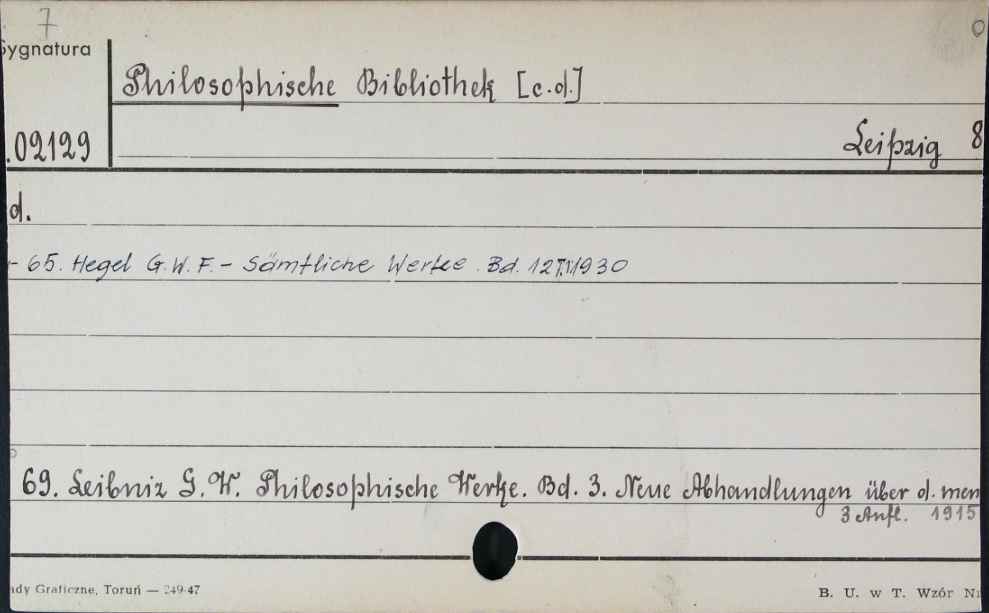 7
Sygnatura
Philosophische Bibliothek [c.d.]
.02129
Leipzig 8
d.
- 65. Hegel G.W.F. - Sämtliche Werke. Bd. 12 1930
69. Leibniz G. W. Philosophische Werke. Bd. 3. Neue Abhandlungen über d. men
3 Aufl. 1915
ady Graficzne, Toruń — 249-47
B. U. w T. Wzór Nr